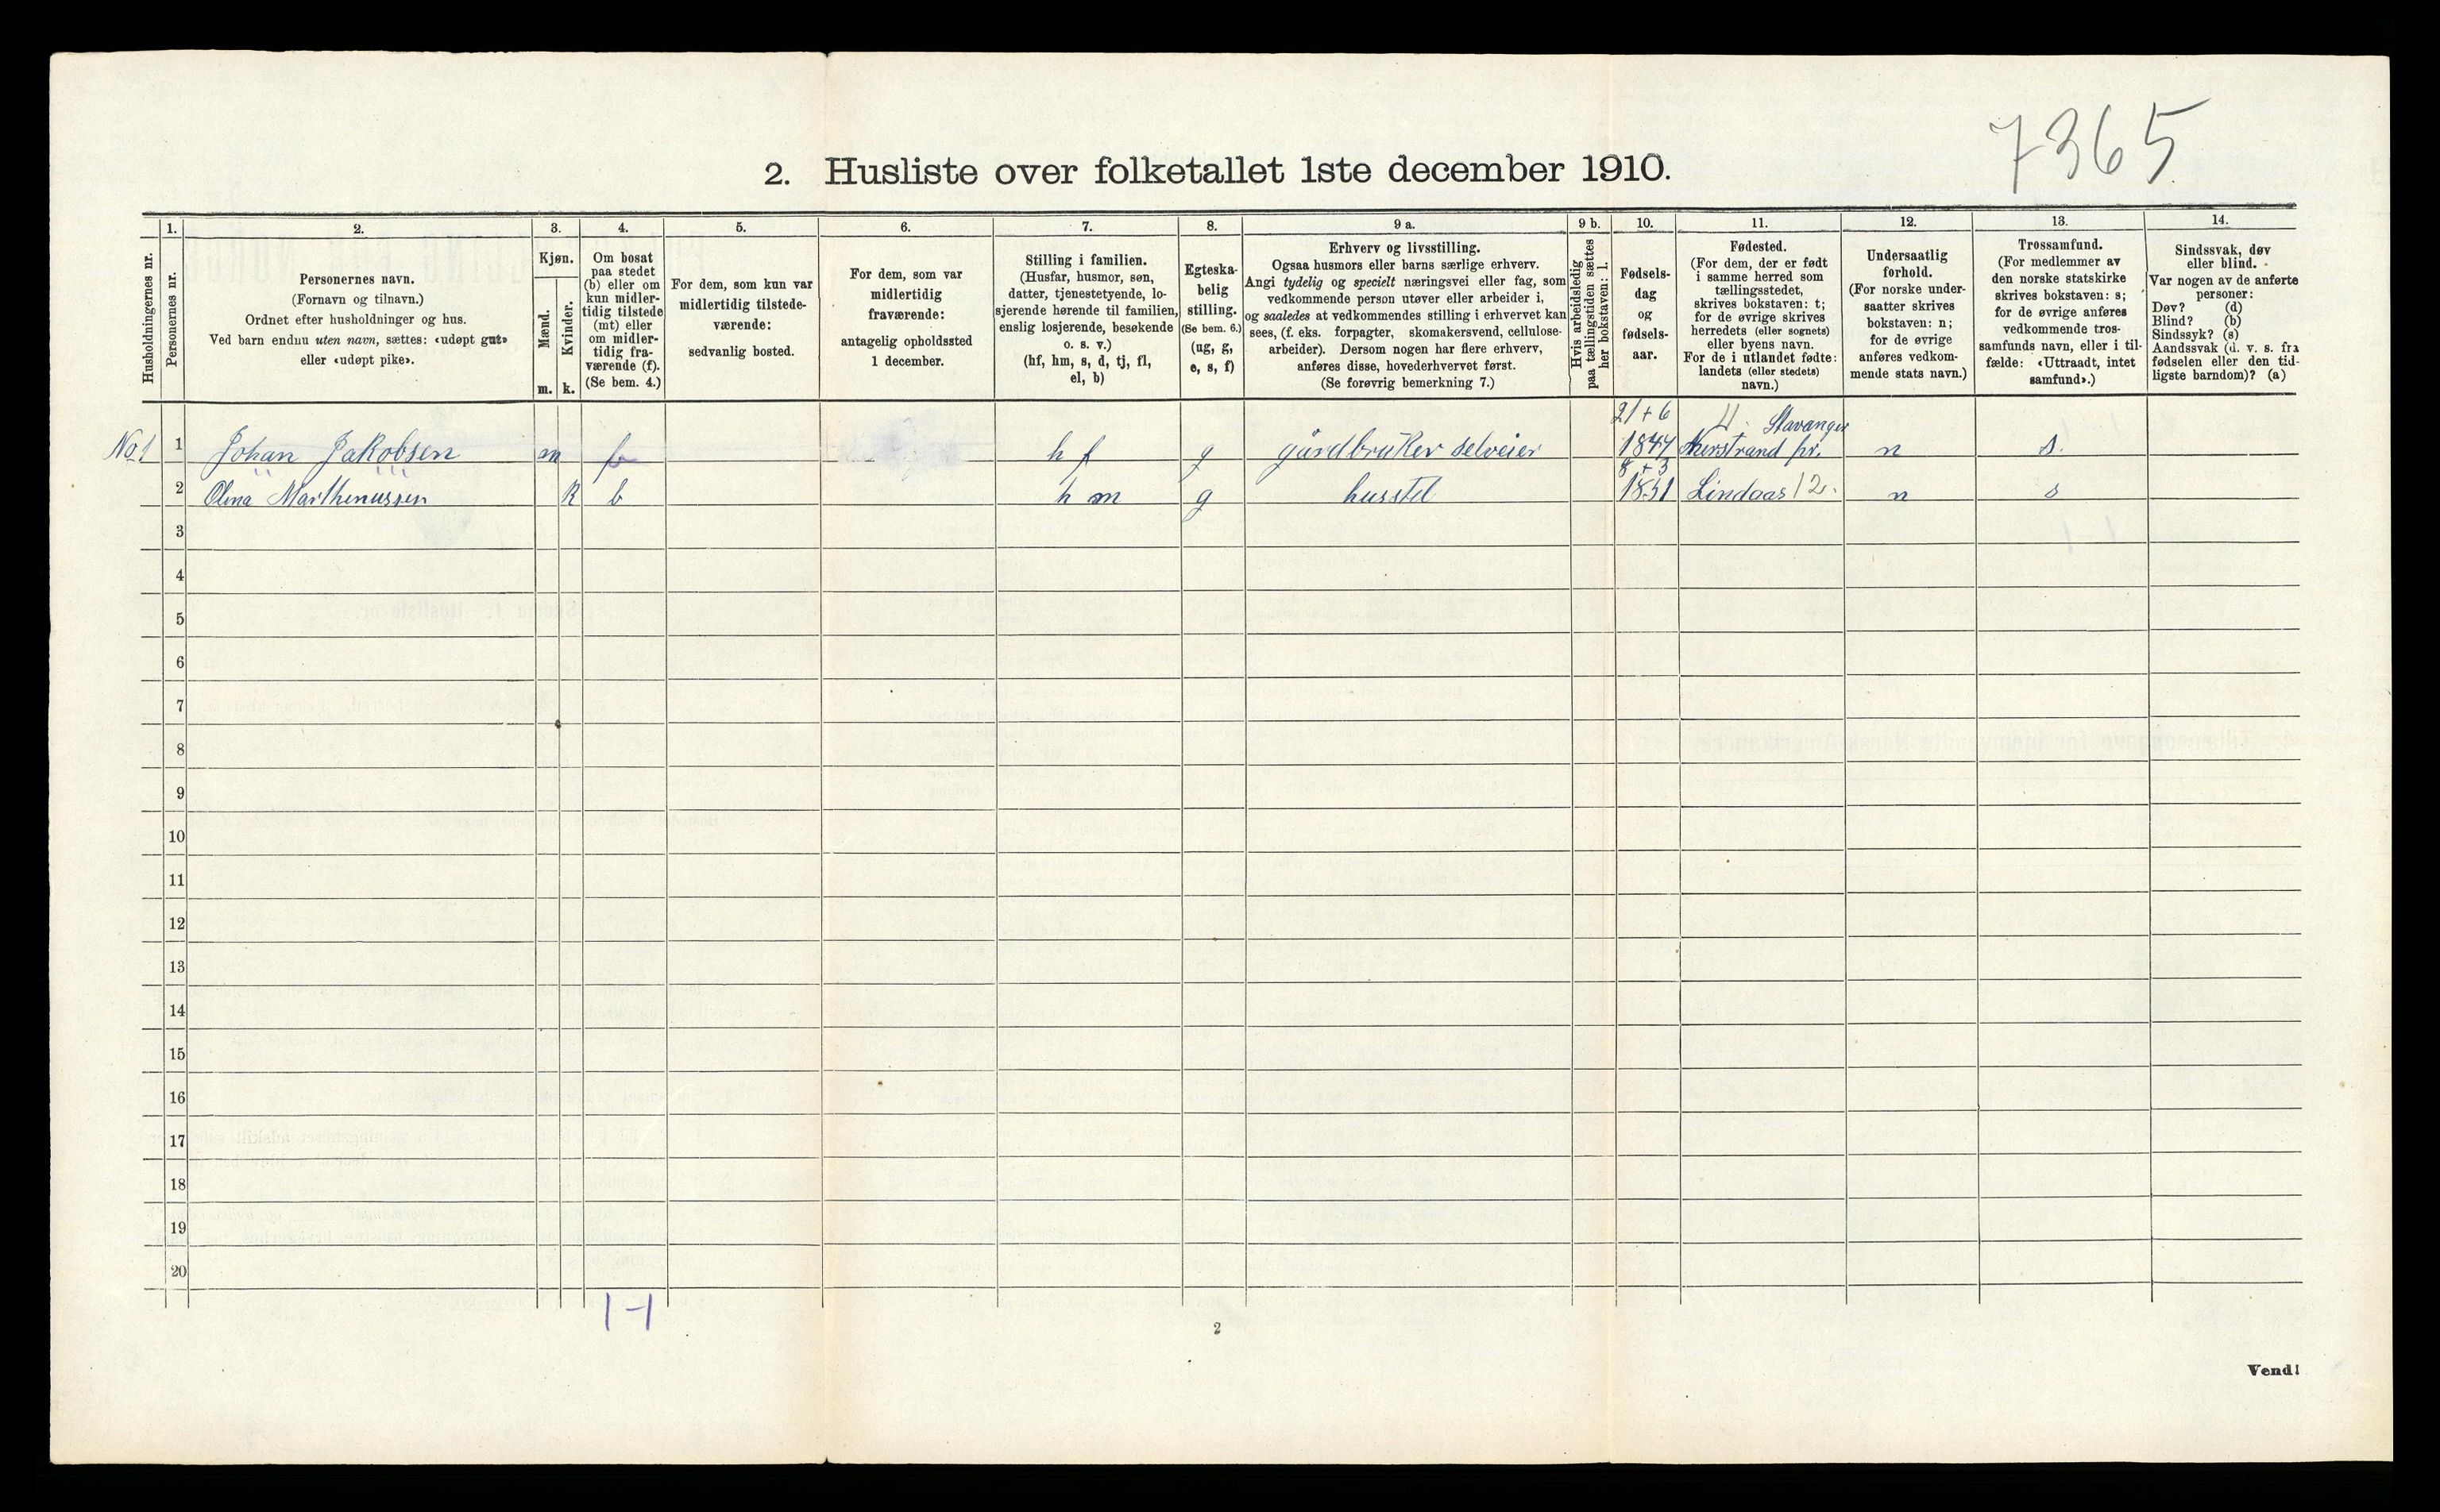 7365
2. Husliste over folketallet 1ste december 1910.
Husholdningernes nr.
1.
Personernes nr.
2.
Personernes navn.
(Fornavn og tilnavn.)
Ordnet efter husholdninger og hus.
Ved barn endnu uten navn, sættes: «udøpt gut»
eller «udøpt pike».
3.
Kjøn.
Mænd.
m.
Kvinder.
k.
4.
Om bosat
paa stedet
(b) eller om
kun midler-
tidig tilstede
(mt) eller
om midler-
tidig fra-
værende (f).
(Se bem. 4.)
5.
For dem, som kun var
midlertidig tilstede-
værende:
sedvanlig bosted.
6.
For dem, som var
midlertidig
fraværende:
antagelig opholdssted
1 december.
7.
Stilling i familien.
(Husfar, husmor, søn,
datter, tjenestetyende, lo-
sjerende hørende til familien,
enslig losjerende, besøkende
o. s. v.)
(hf, hm, s, d, tj, fl,
el, b)
8.
Egteska-
belig
stilling.
(Se bem. 6.)
(ug, g,
e, s, f)
9 a.
Erhverv og livsstilling.
Ogsaa husmors eller barns særlige erhverv.
Angi tydelig og specielt næringsvei eller fag, som
vedkommende person utøver eller arbeider i,
og saaledes at vedkommendes stilling i erhvervet kan
sees, (f. eks. forpagter, skomakersvend, cellulose-
arbeider). Dersom nogen har flere erhverv,
anføres disse, hovederhvervet først.
(Se forøvrig bemerkning 7.)
9 b.
Hvis arbeidsledig
paa tællingstiden sættes
her bokstaven: l.
10.
Fødsels-
dag
og
fødsels-
aar.
11.
Fødested.
(For dem, der er født
i samme herred som
tællingsstedet,
skrives bokstaven: t;
for de øvrige skrives
herredets (eller sognets)
eller byens navn.
For de i utlandet fødte:
landets (eller stedets)
navn.)
12.
Undersaatlig
forhold.
(For norske under-
saatter skrives
bokstaven: n;
for de øvrige
anføres vedkom-
mende stats navn.)
13.
Trossamfund.
(For medlemmer av
den norske statskirke
skrives bokstaven: s;
for de øvrige anføres
vedkommende tros-
samfunds navn, eller i til-
fælde: «Uttraadt, intet
samfund».)
14.
Sindssvak, døv
eller blind.
Var nogen av de anførte
personer:
Døv? (d)
Blind? (b)
Sindssyk? (s)
Aandssvak (d. v. s. fra
fødselen eller den tid-
ligste barndom)? (a)
21+6 Stavanger
No 1 1 Johan Jakobsen m b hf g gårdbruker selveier 1844 Nerstrand pr. n s.
8+3
2 Olina Marthenussen k b hm g husstel 1851 Lindaas 12. n s
3
4
5
6
7
8
9
10
11
12
13
14
15
16
17
18
19
20
1-1
2
Vend!